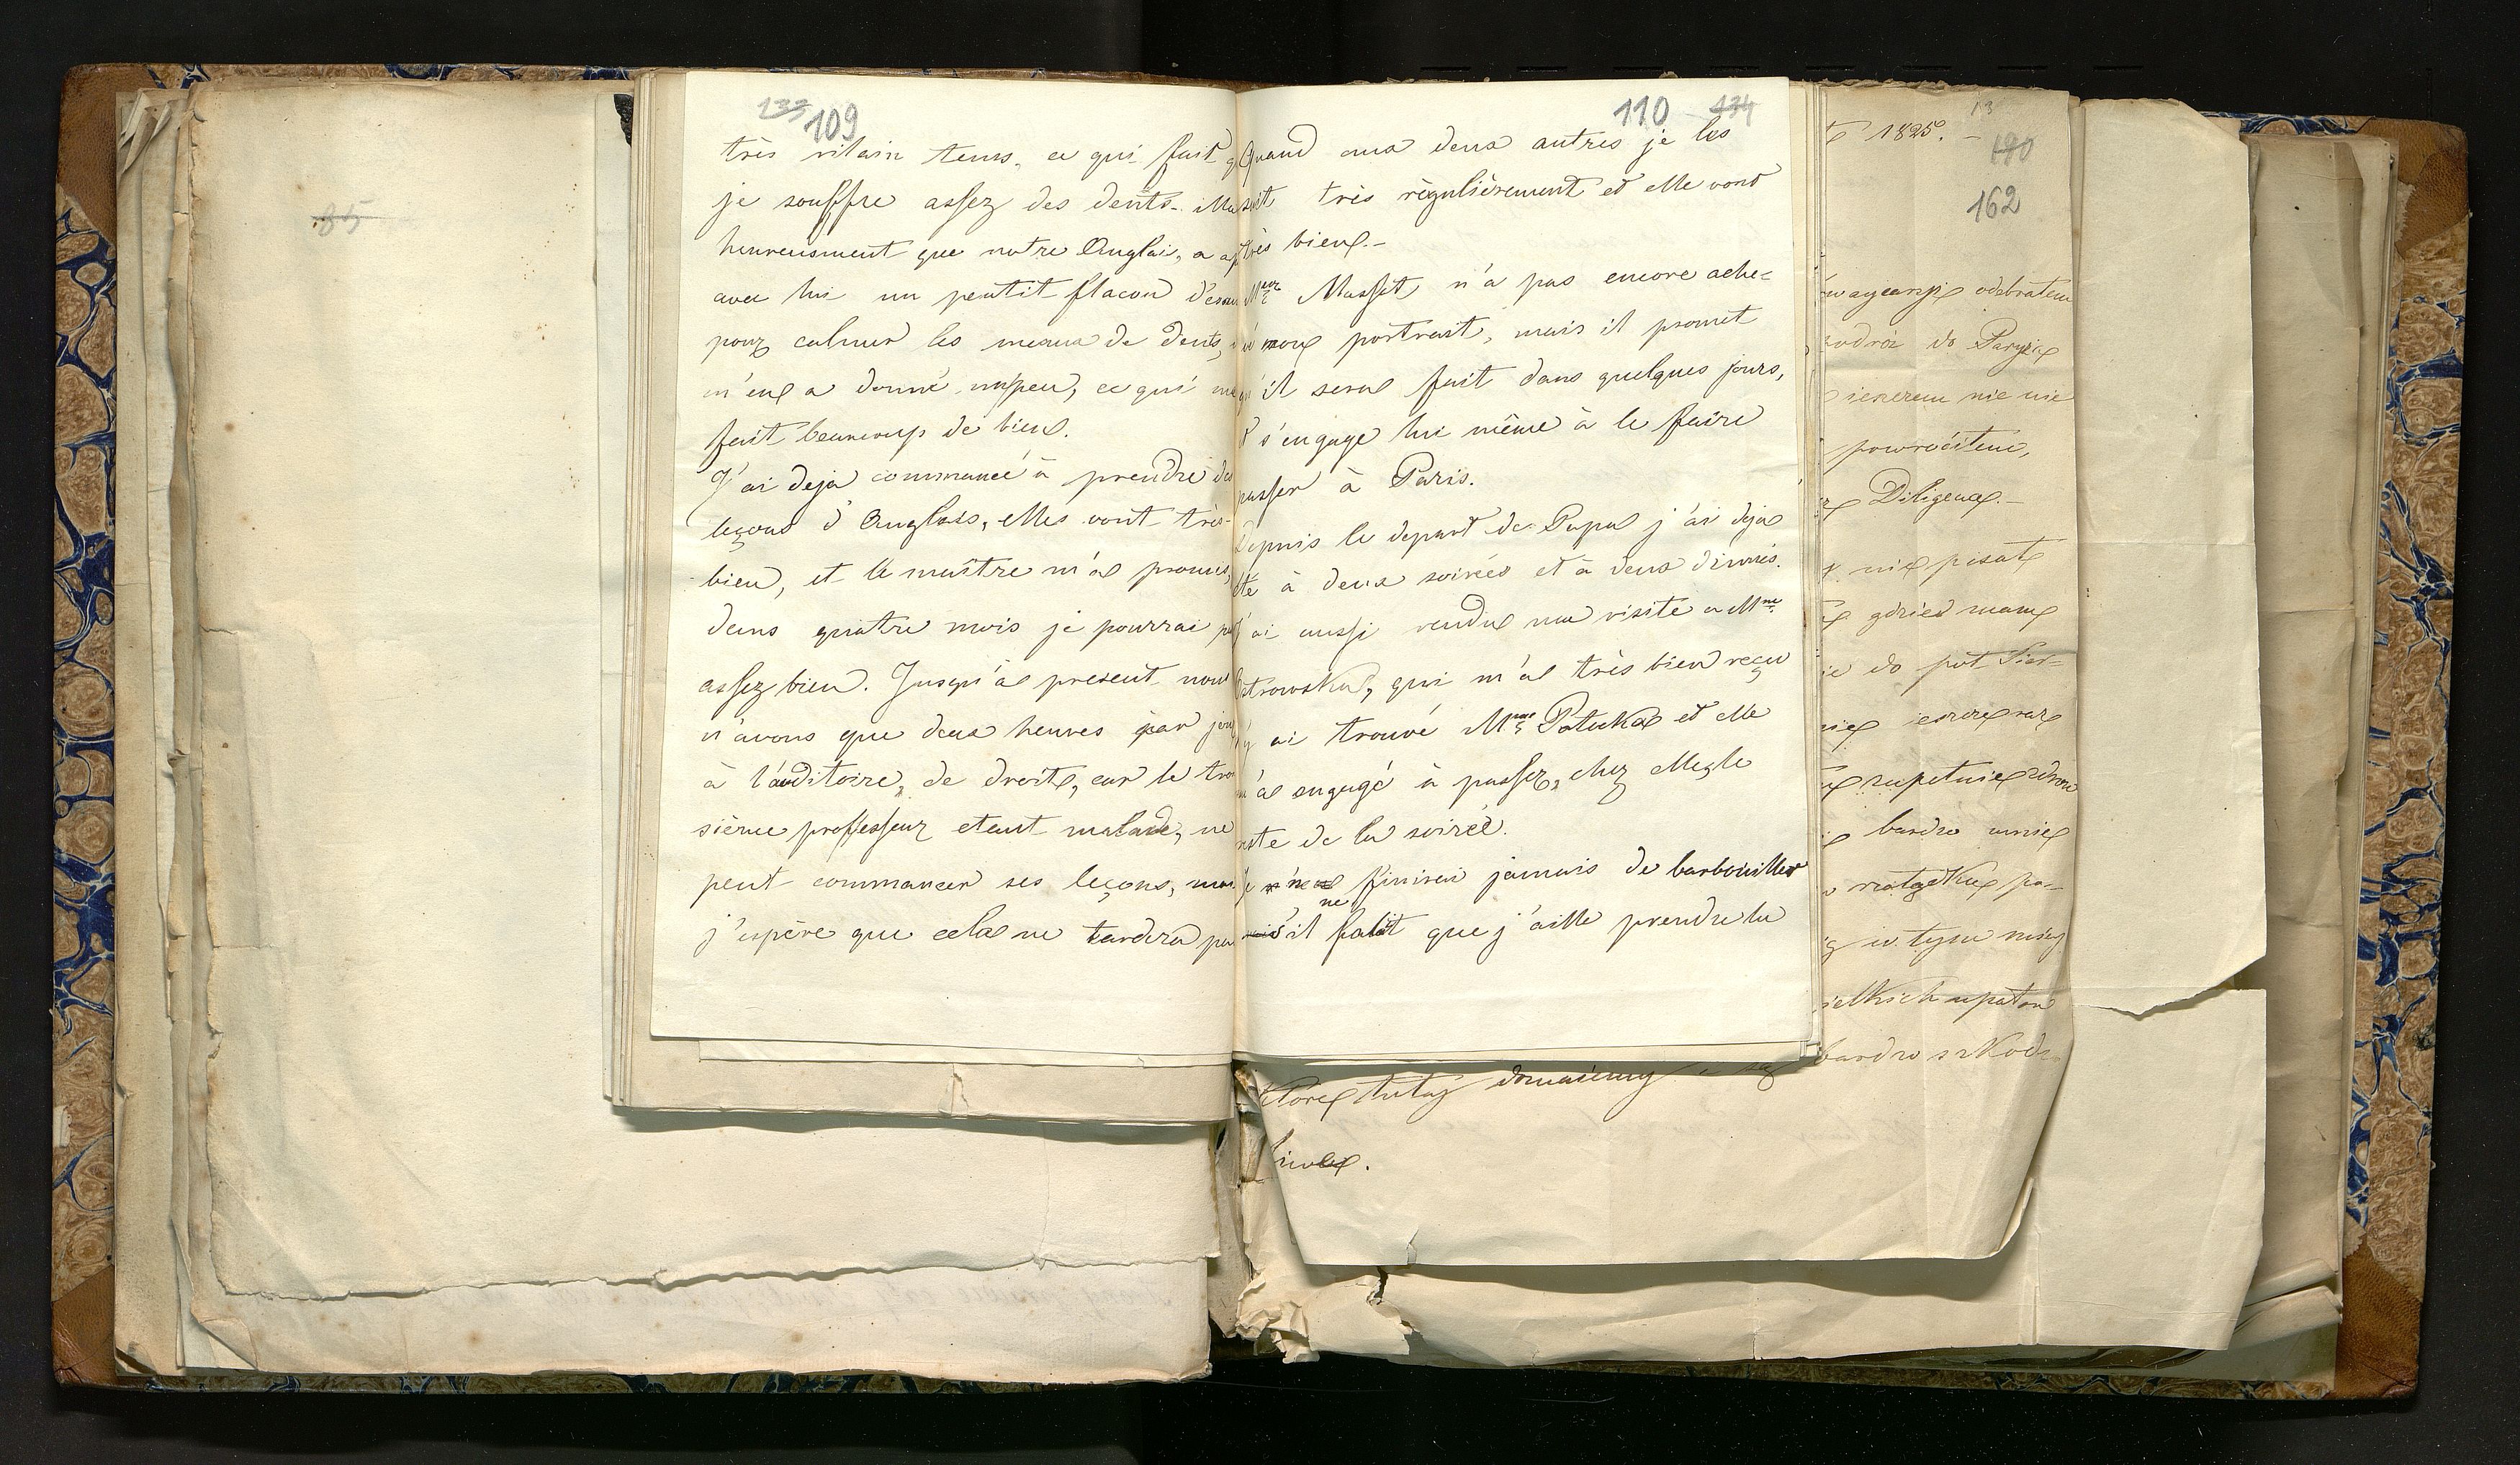 85
133 109
très vilain tems, ce qui fait q
je souffre assez des dents. Ma
heureusment que notre Anglai, a ap
avec lui un peutit flacon d'eau
pour calmer les meaux de dents,
m'en a donné un peu, ce qui me
fait beaucoup de bien.
J'ai deja commancé à prendre de
leçons d'Anglais, elles vont très-
bien, et le maître m'a promis,
dans quatre mois je pourrai pa
assez bien. Jusqu'à present nous
n'avons que deux heures par jou
à l'auditoire, de droit, car le tro
sième professeur etant malade, ne
peut commancer ses leçons, mai
j'espère que cela ne tardera pa
110 134
Quand aux deux autres je les
suit très règulièrement et elle vont
très bien.-
Mr Musset, n'a pas encore ache-
vé mon portrait, mais il promet
qu'il sera fait dans quelques jours,
s'engage lui même à le faire
passer à Paris.
Depuis le depart de Papa j'ai deja
été à deux soirées et à deux dinnés.
J'ai aussi rendu une visite a Mme
Ostrowska, qui m'a très bien reçu
j'y ai trouvé Mme Potocka et elle
m'a engagé à passer, chez elle le
reste de la soirée.
Je finirai jamais de barbouiller
ne
s'il falait que j'aille prendre la
1825. -
13
180
162
odebratem
podróż do Paryża
nie nie
powróciłem,
Diligence.-
nie pisał
gdzieś mam
do pół
zupełnie zdrow
bardzo umie
w tym
bardzo szkod
które tutaj